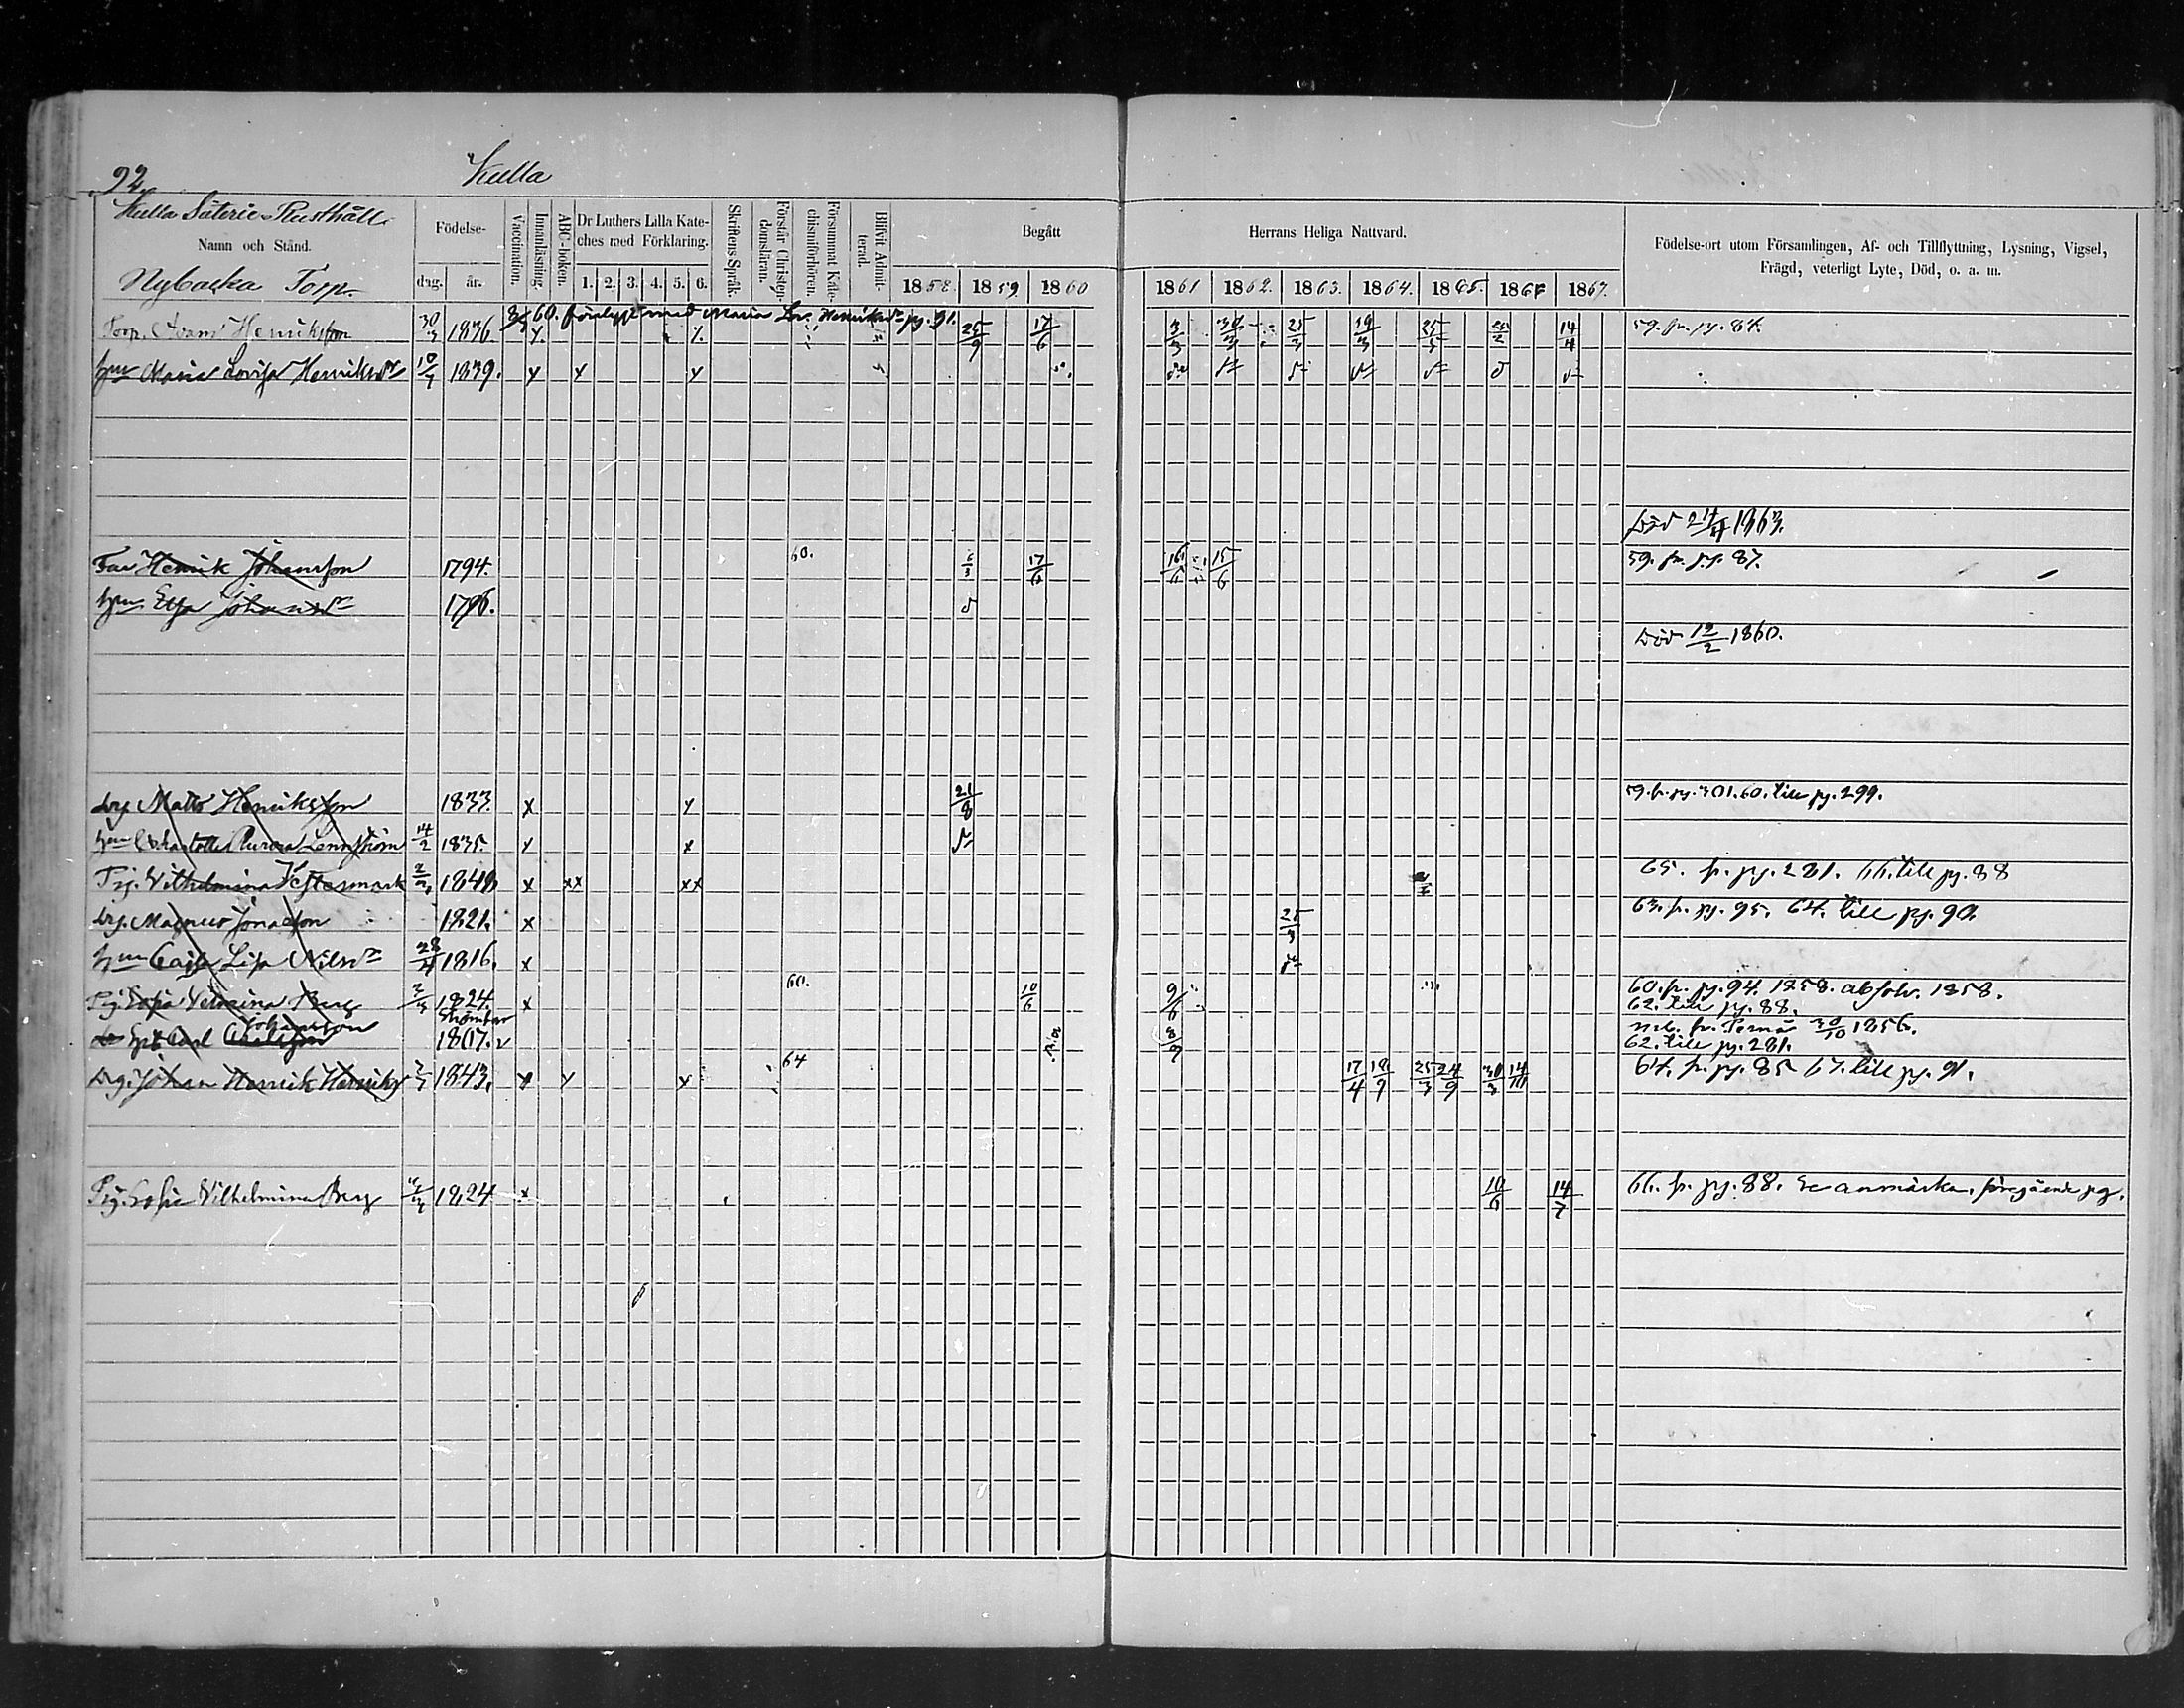 92.
Kulla
Kulla Säterie-Rusthåll.
Namn och Stånd.
Nybacka Torp.
Födelse-
dag. år.
Vaccination.
Innanläsning.
ABC-boken.
Dr Luthers Lilla Kate-
ches med Förklaring.
1. 2. 3. 4. 5. 6.
Skriftens Språk.
Förstår Christen-
domsläran.
Försummat Kate-
chismiförhören.
Blifvit Admit-
terad.
Begått
1858. 1859. 1860
Herrans Heliga Nattvard.
1861 1862. 1863. 1864. 1865. 1866 1867.
Födelse-ort utom Församlingen, Af- och Tillflyttning, Lysning, Vigsel,
Frägd, veterligt Lyte, Död, o. a. m.
60. förelyst med Maria Lov. Henriksdr pg. 91.
Torp. Adam Henriksson 30/3 1836. 25/9 17/6 3/3 30/3 25/3 19/3 25/5 14/4 59. fr. pg. 87.
hu Maria Lovisa Henriksdr 1839. y y y
Död 24/4 1863.
Far Henrik Johansson 1794. 60. 6/3 17/6 16/6 15/6 59. fr. pg. 87.
hu Eva Johansdr 1796.
Död 12/2 1860.
drg. Matts Henriksson 1833 x y 21/8 59. fr. pg. 301. 60. till pg. 299.
hu Charlotta Aurora Lennström 14/2 1835 y x
Pig. Vilhelmina Vestermark 1848 x xx xx 65. fr. pg. 281. 66. till pg. 88
drg. Magnus Jonasson 1821. x 25/3 63. fr. pg. 95. 64. till pg. 90.
hu Cajsa Lisa Nilsdr 28/4 1816. x
Pig. Sofia Vilmina Berg 1824. x 60. 10/6 9/6 60. fr. pg. 94. 1858. absolv. 1858.
62. till pg. 88.
Johansson
Carl 1807. 8/9 inl. fr. Pernå 30/10 1856.
62. till pg. 281.
Drg. Johan Henrik Henriks 1843. y y x 64 17/4 18/9 25/3 24/9 30/3 14/10 64. fr. pg. 85 67. till pg. 91.
Pig. Sofia Vilhelmina Berg 1824 x 10/6 14/7 66. fr. pg. 88. Se anmärkn. föregående pg.